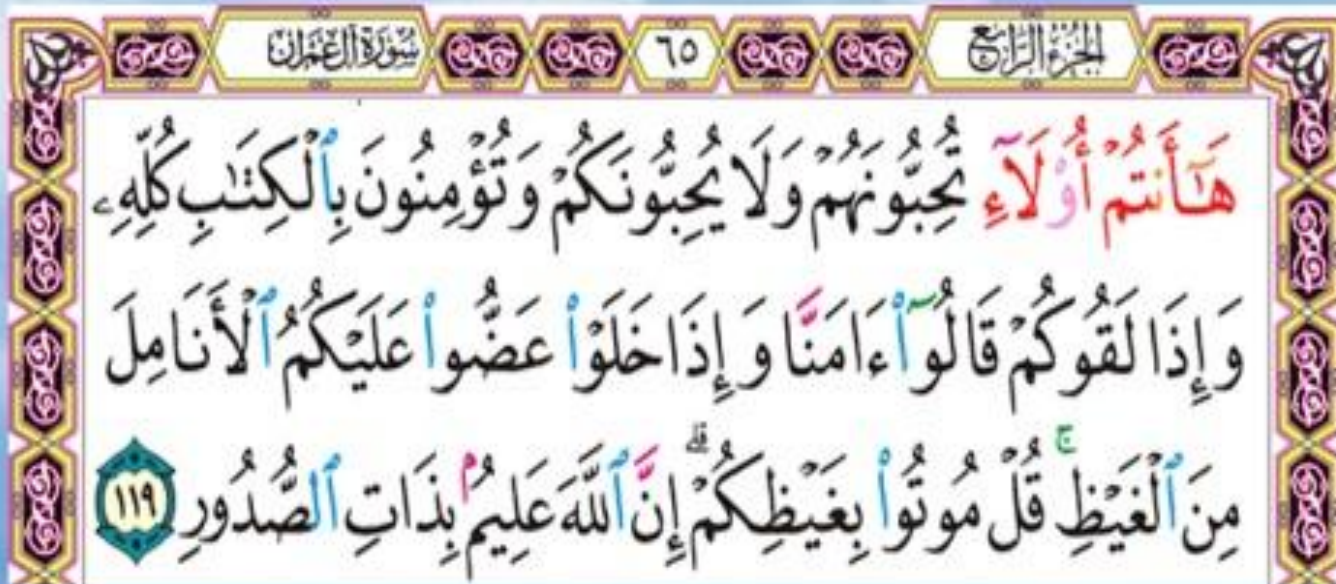 الجزء الرابع ٦٥ سورة آل عمران
هَٰٓأَنتُمْ أُو۟لَآءِ تُحِبُّونَهُمْ وَلَا يُحِبُّونَكُمْ وَتُؤْمِنُونَ بِٱلْكِتَٰبِ كُلِّهِۦ
وَإِذَا لَقُوكُمْ قَالُوٓا۟ ءَامَنَّا وَإِذَا خَلَوْا۟ عَضُّوا۟ عَلَيْكُمُ ٱلْأَنَامِلَ
مِنَ ٱلْغَيْظِ ۚ قُلْ مُوتُوا۟ بِغَيْظِكُمْ ۗ إِنَّ ٱللَّهَ عَلِيمٌۢ بِذَاتِ ٱلصُّدُورِ ١١٩